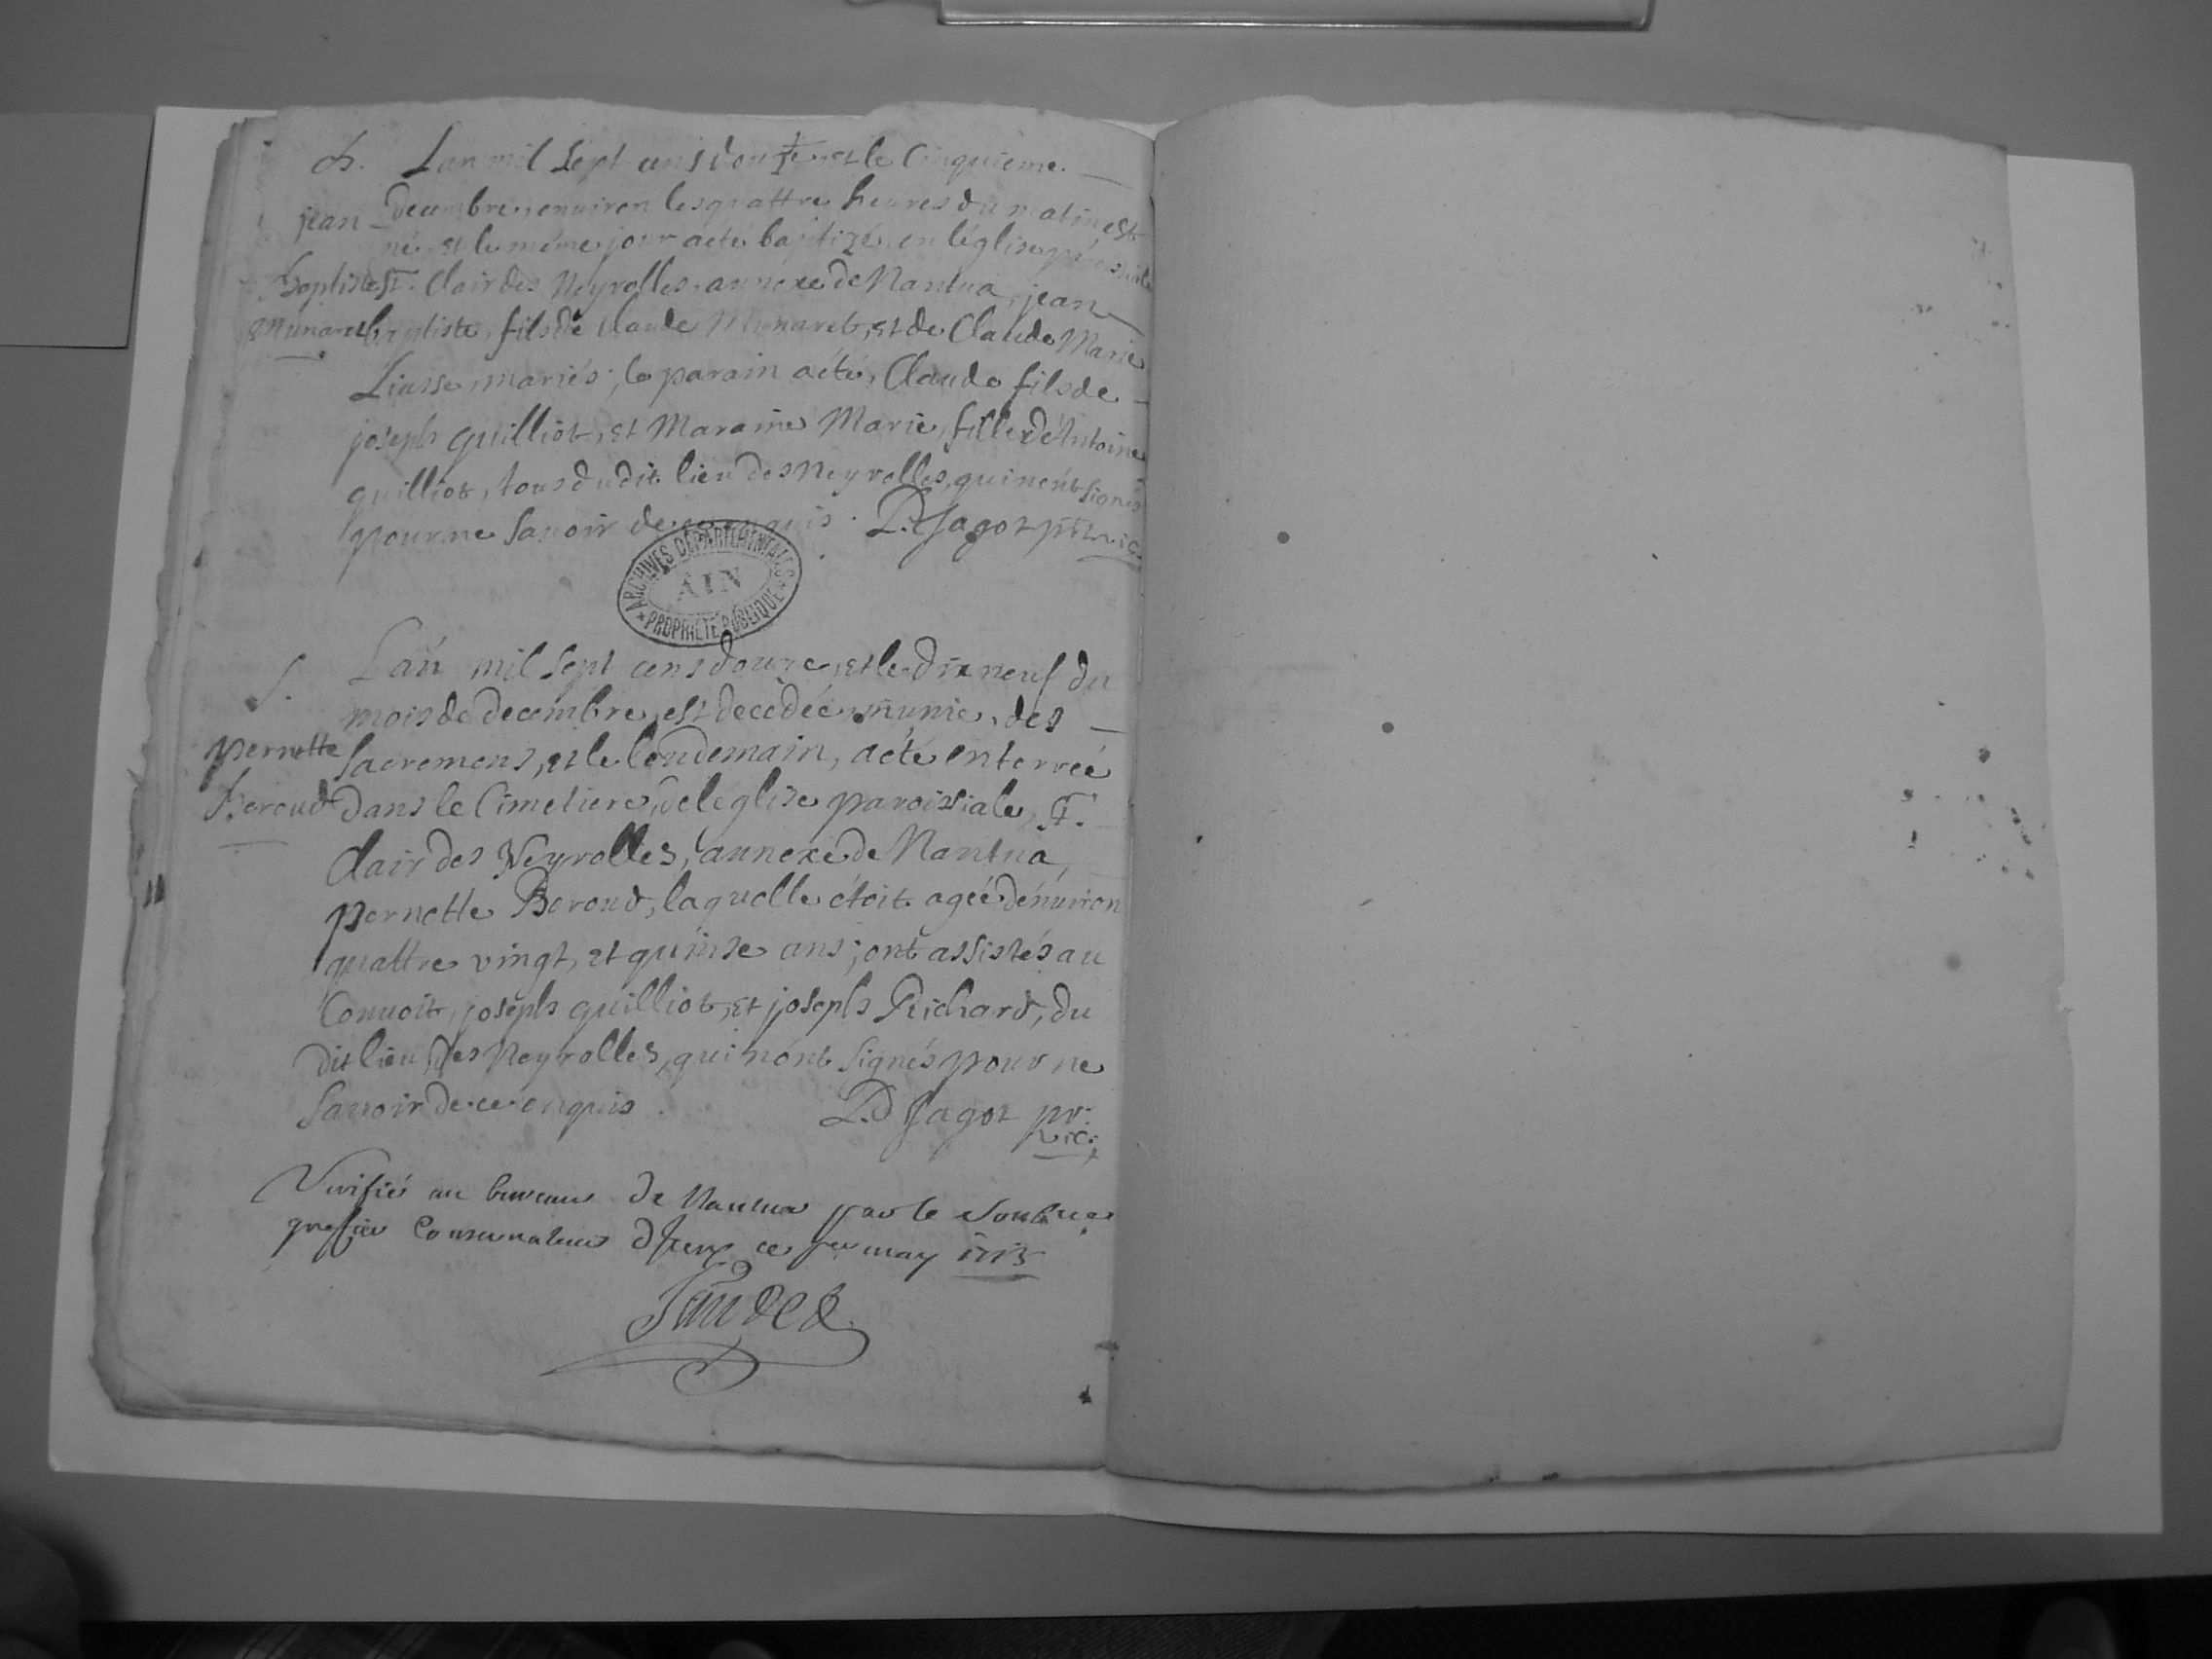 b. Lan mil sept cens douze, et le Cinquieme
jean decembre, enuiron les quattre heures du matin, est
né, et le méme jour a été baptizé en léglise paroissiale
Baptiste St. Clair des Neyrolles, annexe de Nantua, jean
Munaret baptiste, fils de Claude Munaret, et de Claude Marie
Liasse, mariés; le parain a été, Claude fils de
joseph Guilliot, et Maraine Marie, fille d'Antoine
guilliot, tous dudit lieu des Neyrolles, qui n'ont signés
pour ne sauoir de ce enquis. P.D Jagoz ptre vic.
ARCHIVES DÉPARTEMENTALES
AIN
PROPRIÉTÉ PUBLIQUE
S. L'an mil sept cens douze, et le dix neuf du
mois de decembre, est decédée, munie, des
pernette sacremens, et le lendemain, a été enterrée
Beroud dans le Cimetiere, de leglise paroissiale, St.
Clair des Neyrolles, annexe de Nantua,
pernette Beroud, laquelle étoit agée dénuiron
quattre vingt, et quinse ans; ont assistés au
Conuoit, joseph guilliot, et joseph Richard, du
dit lieu des Neyrolles, qui n'ont signés pour ne
sauoir de ce enquis. P.D Jagoz pr.
vic.
Verifié au bureau de Nantua par le
greffier Conseruateur ce may 1713